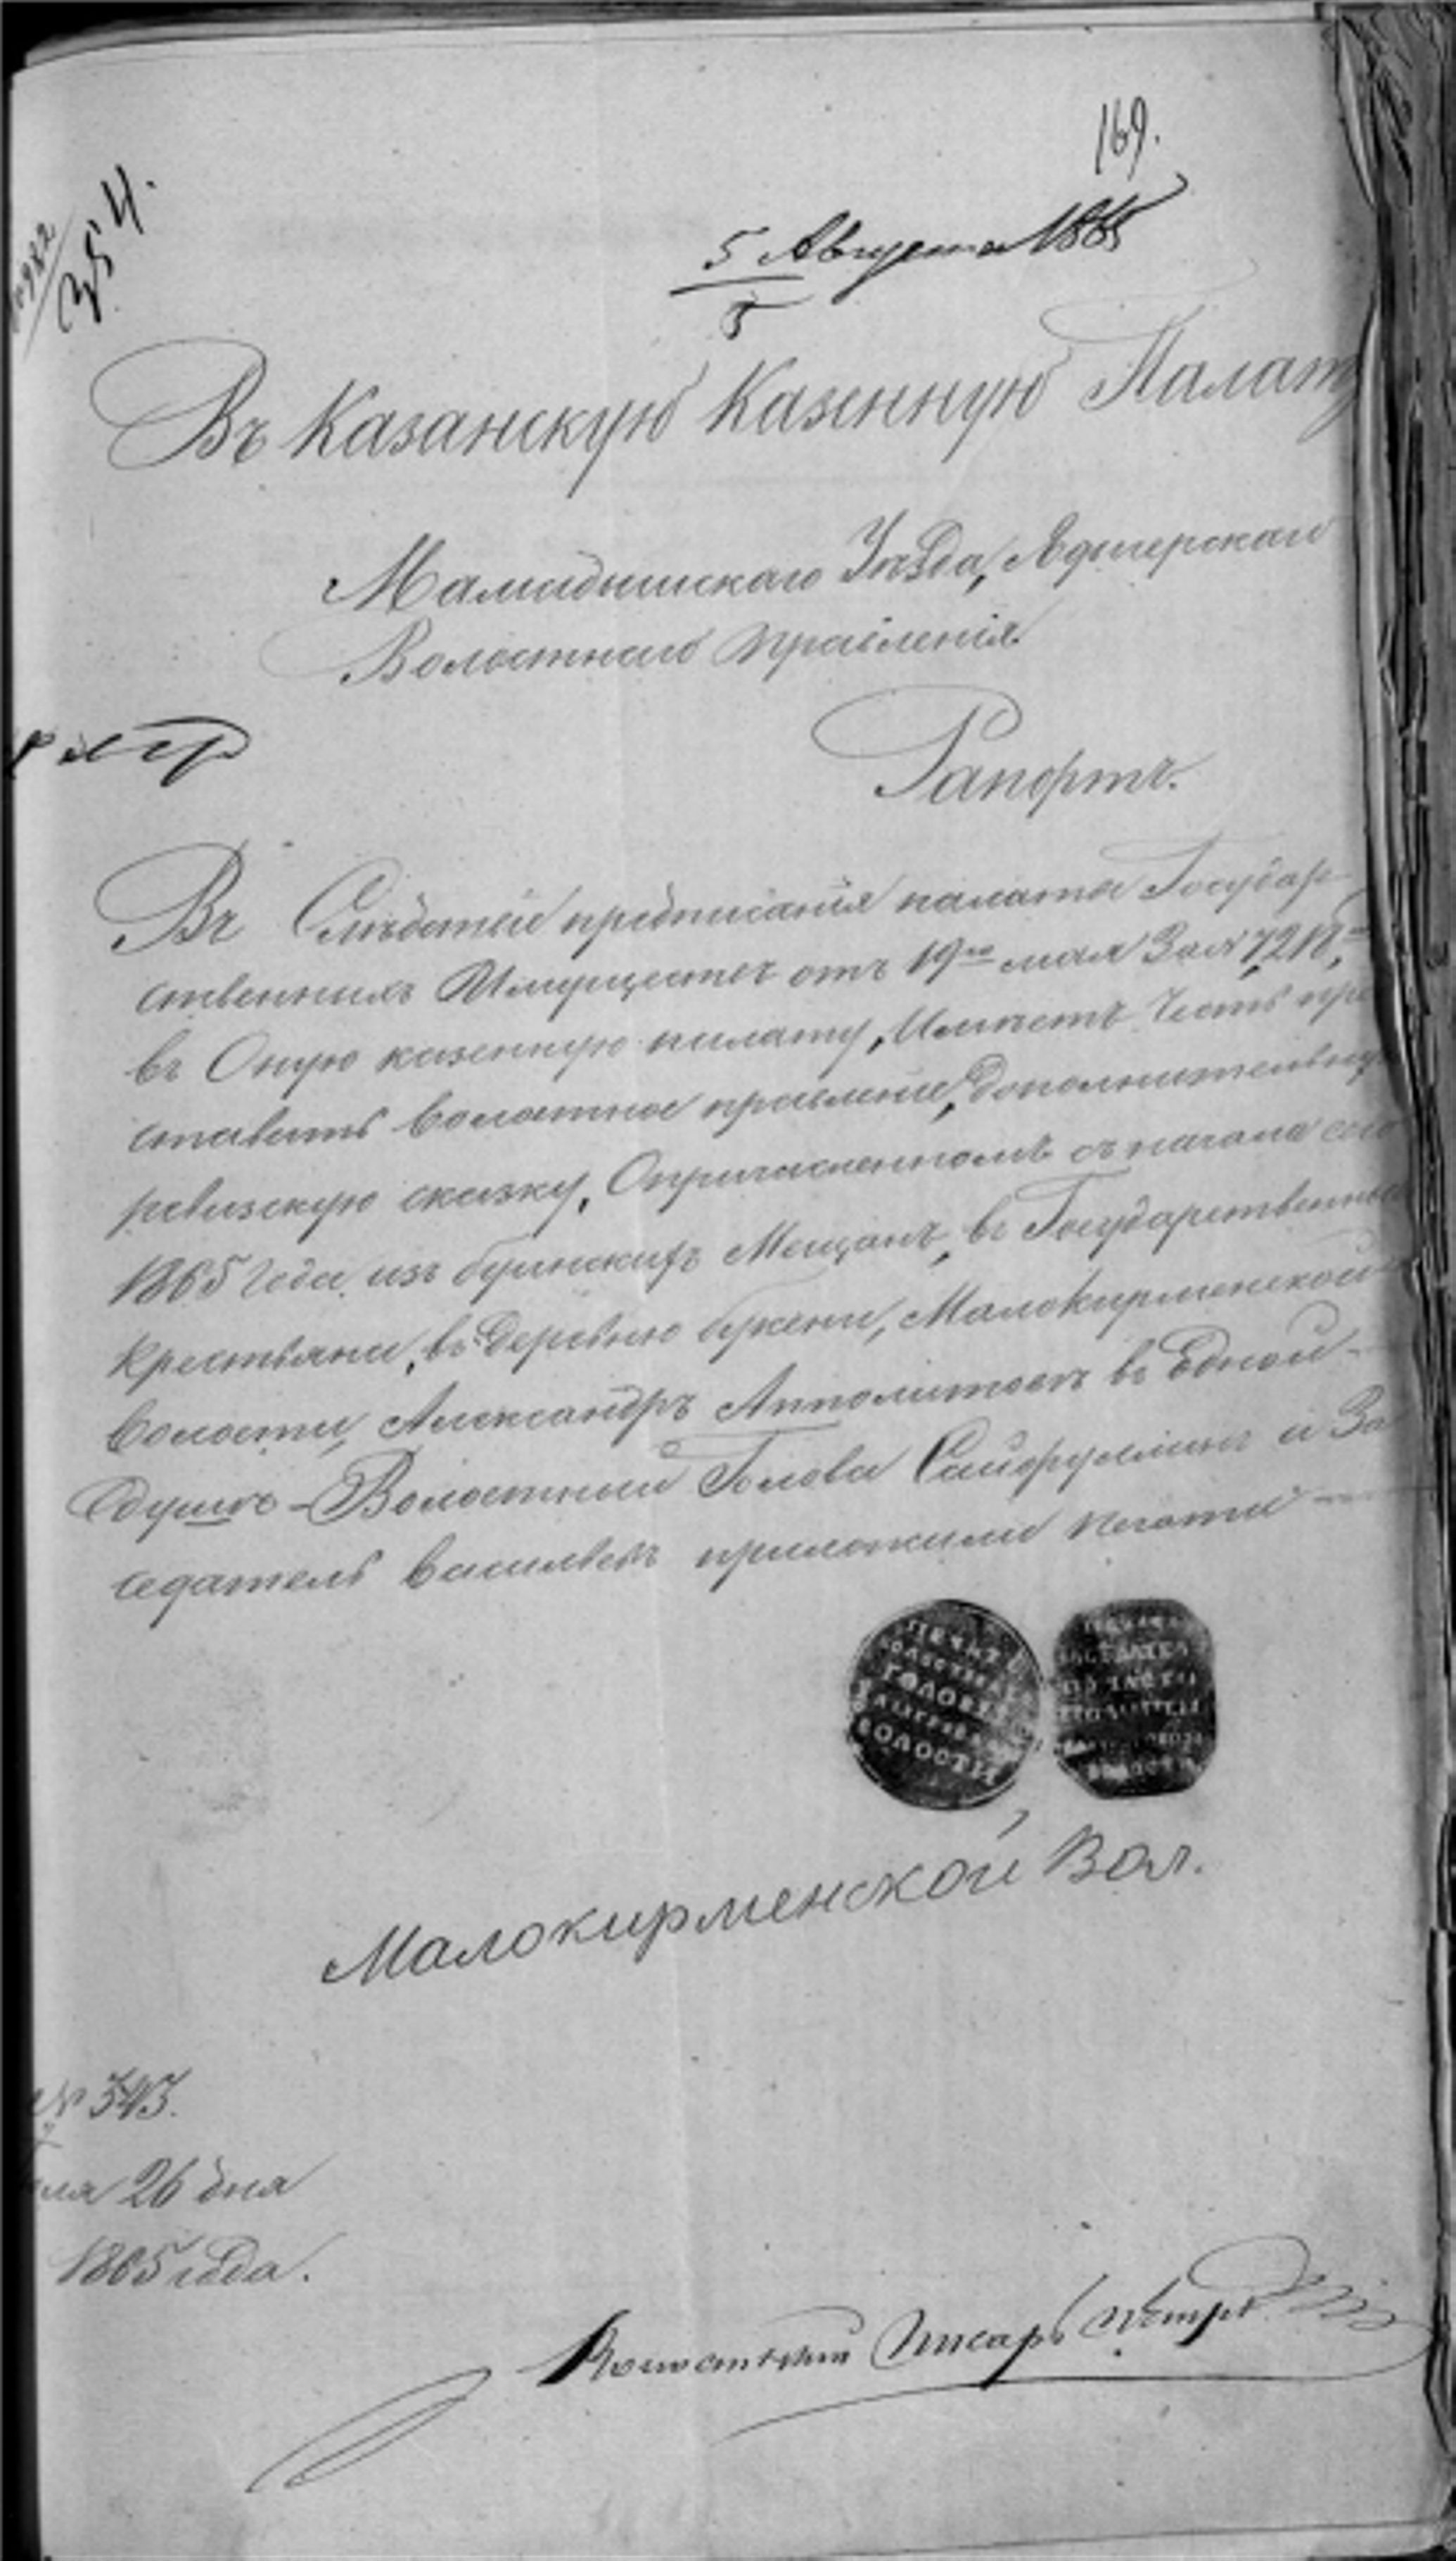 169.
354.
5 Августа 1865
5
Въ Казанскую Казенную Палату
Мамадышскаго Уѣзда, Ядыгерскаго
Волостнаго Правленія
Рапортъ.
Въ Слѣдствіе предписанія палаты Государ-
ственныхъ Имуществъ отъ 19го мая За № 7218,
въ Оную казенную палату, Имѣетъ Честь пре
ставить волостное правленіе, дополнительную
ревизскую сказку, Опричисленномъ съ начала сего
1865 Года изъ буинскихъ Мещанъ, въ Государственные
Крестьяни, въ деревню букени, Малокирменской
волости, Александръ Апполитовъ въ Едной
Душѣ – Волостный Голова Сайфуллинъ и За
седатель Васильевъ приложили печати
ПЕЧАТЬ
ВОЛОСТНАГО
ГОЛОВЫ
ВОЛОСТИ
Малокирменской Вол.
№ 543.
26 дня
1865 года.
Волостный Писарь Петров